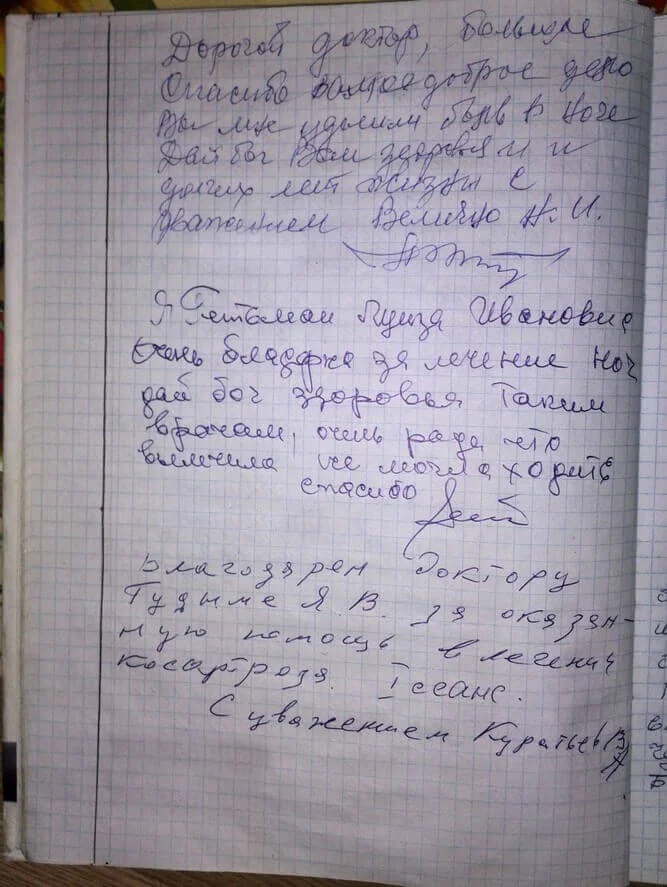 Дорогой доктор, большое
Спасибо за доброе дело
Вы мне удалили боль в ноге
Дай бог Вам здоровья и и
долгих лет жизни С
уважением Величко Н. И.
Я Гетьман Луиза Ивановна
очень благодарна за лечение ног
дай бог здоровья таким
врачам, очень рада что
вылечила не могла ходить
спасибо
Благодарен Доктору
Гудыме Я. В. за оказан-
ную помощь в лечении
косартроза. I сеанс.
С уважением Куратьев В